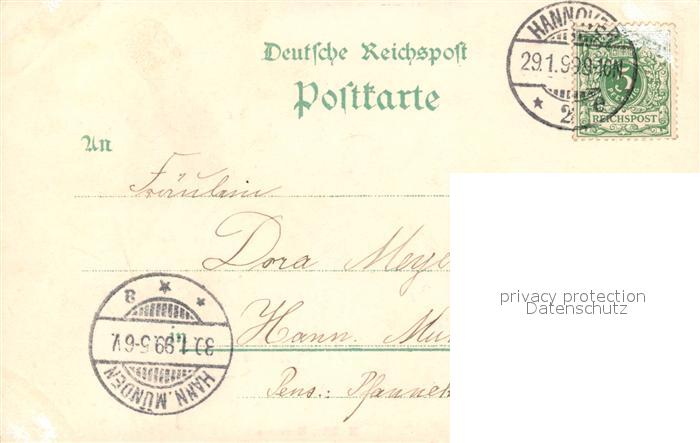 Deutsche Reichspost
Postkarte
HANNOVER
29.1.99.9-10N.
* 2 e
5
REICHSPOST
An
Fräulein
Dora Meye
in Hann. Mün
Pens.: Pfannek
HANN. MÜNDEN
30.1.99.5-6V.
a
privacy protection
Datenschutz